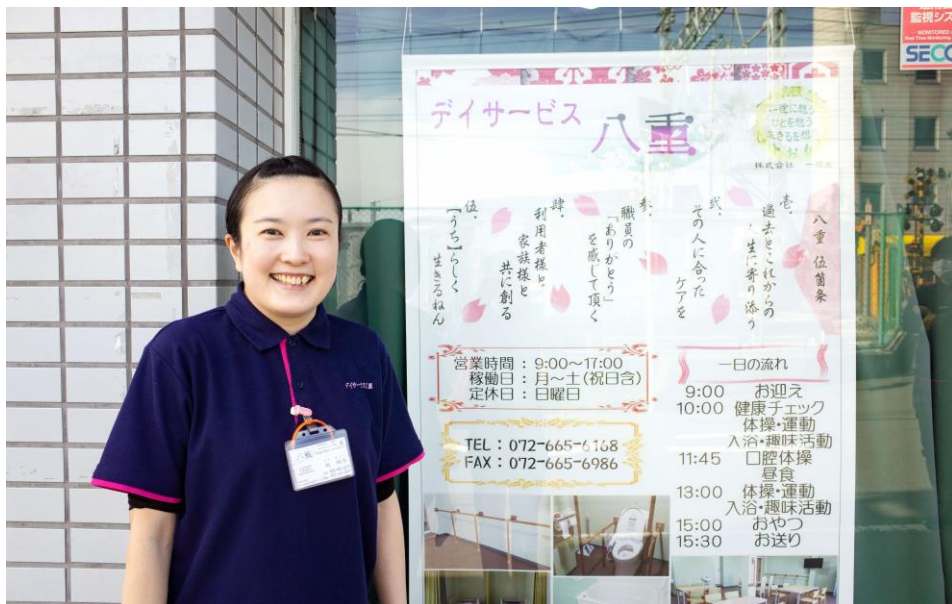 監視シス
SECO
デイサービス
八重
一度に想う
ひとを想う
生きるを想
株式会社
八重 伍箇条
壱、
過去とこれからの
人生に寄り添う
弐、
その人に合った
ケアを
参、
職員の
「ありがとう」
を感じて頂く
肆、
利用者様と、
家族様と
共に創る
伍、
【うち】らしく
生きるねん
営業時間：9:00〜17:00
稼働日：月〜土(祝日含)
定休日：日曜日
TEL：072-665-6168
FAX：072-665-6986
一日の流れ
9:00 お迎え
10:00 健康チェック
体操・運動
入浴・趣味活動
11:45 口腔体操
昼食
13:00 体操・運動
入浴・趣味活動
15:00 おやつ
15:30 お送り
デイサービス八重